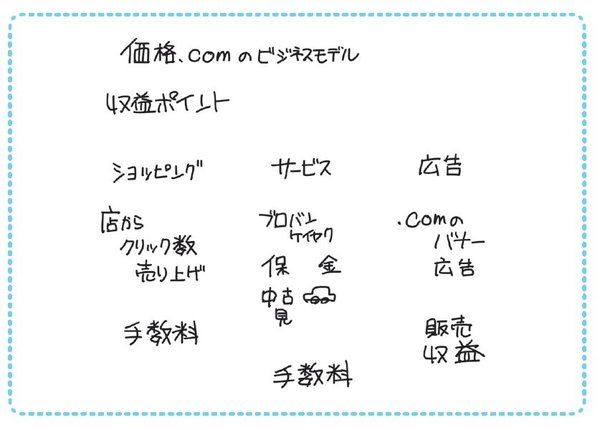 価格.comのビジネスモデル
収益ポイント
ショッピング
サービス
広告
店から
クリック数
売り上げ
手数料
プロバン
ケイヤク
保 金
中古
見
手数料
.comの
バナー
広告
販売
収益